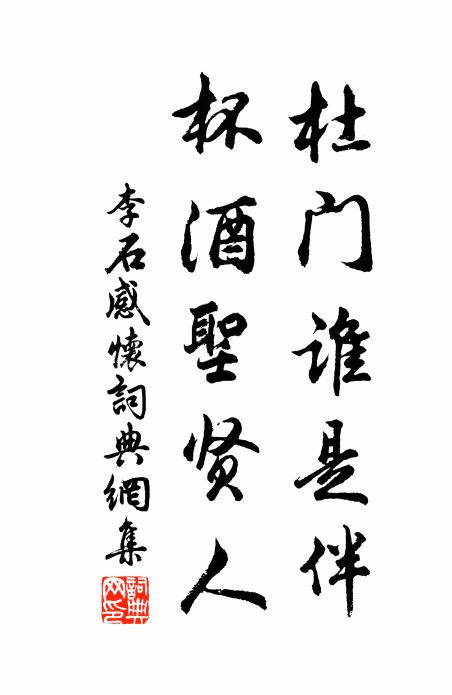 杜门谁是伴
杯酒聖贤人
李石感懷詞典網集
詞典网印